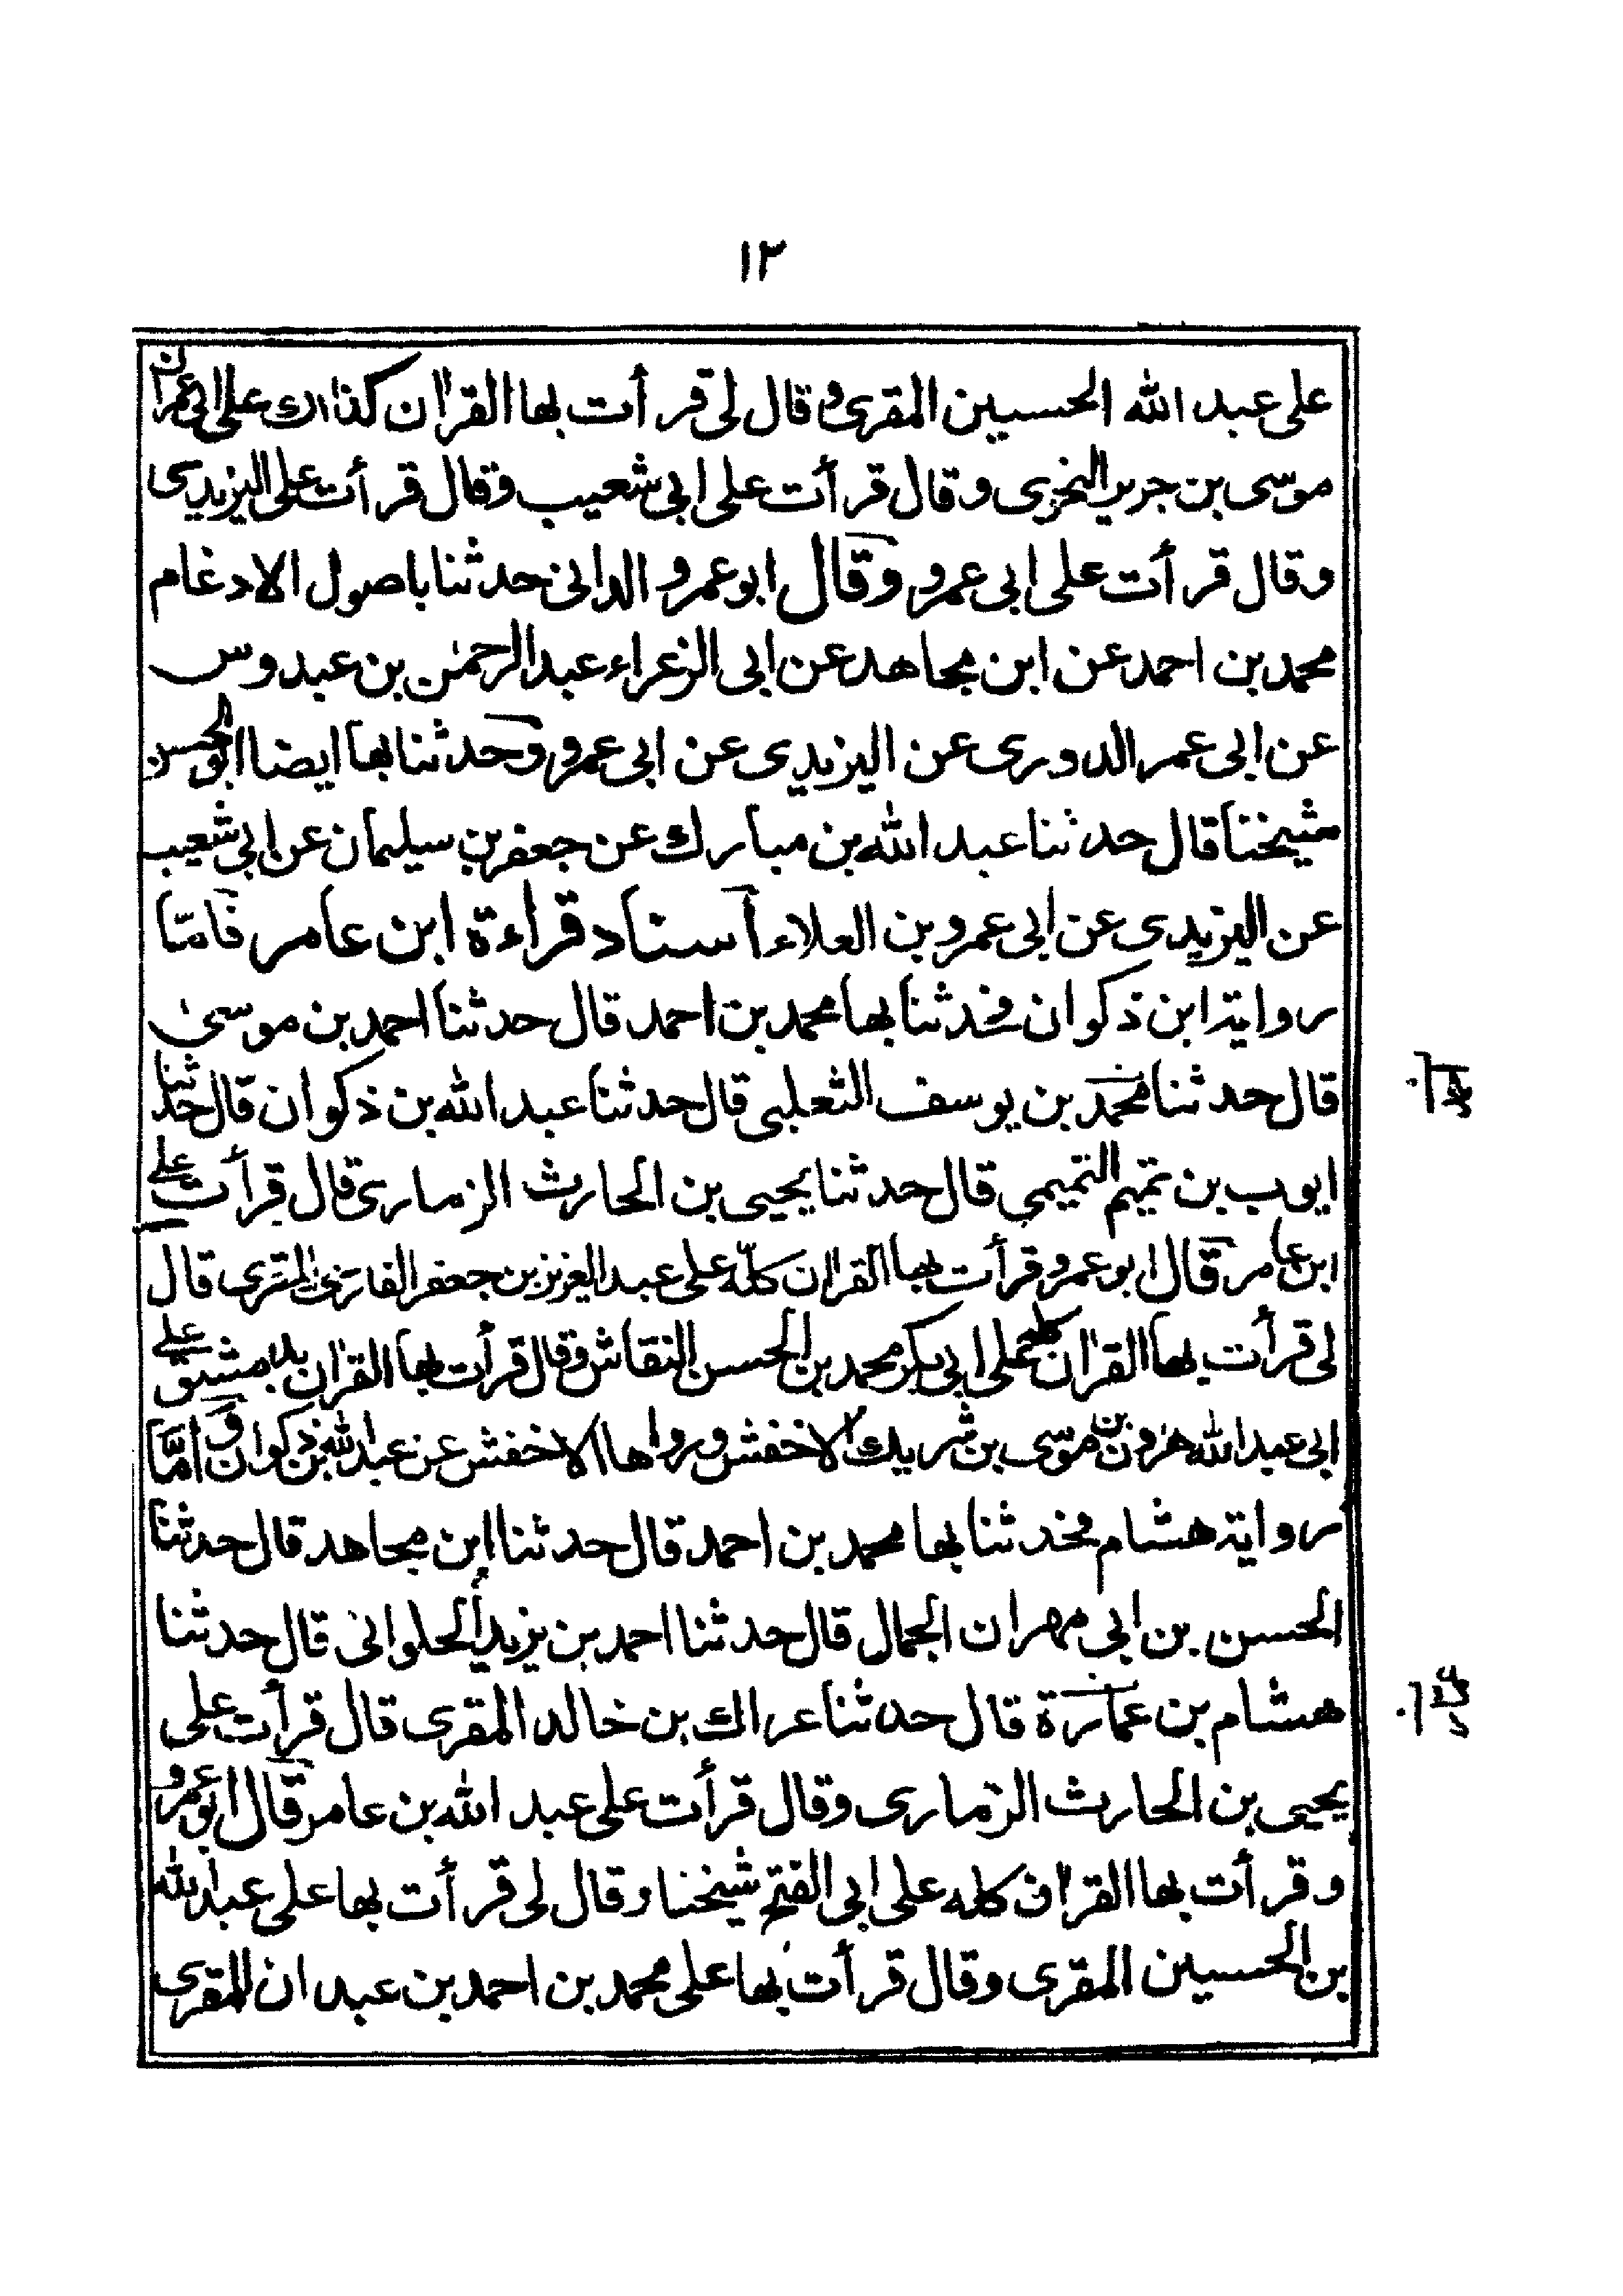 ١٣
على عبد الله الحسين المقرى وقال لى قرأت بها القرأن كذلك على ابى عمران
موسى بن جرير النحوى وقال قرأت على ابى شعيب وقال قرأت على اليزيدى
وقال قرأت على ابى عمرو وقال ابو عمرو الدانى حدثنا باصول الادغام
محمد بن احمد عن ابن مجاهد عن ابى الزعراء عبد الرحمن بن عبدوس
عن ابى عمر الدورى عن اليزيدى عن ابى عمرو وحدثنا بها ايضا ابو الحسن
شيخنا قال حدثنا عبد الله بن مبارك عن جعفر بن سليمان عن ابى شعيب
عن اليزيدى عن ابى عمرو بن العلاء اسناد قراءة ابن عامر فامّا
رواية ابن ذكوان فحدثنا بها محمد بن احمد قال حدثنا احمد بن موسىٰ
قال حدثنا محمد بن يوسف الثعلبى قال حدثنا عبد الله بن ذكوان قال حدثنا
ايوب بن تميم التميمى قال حدثنا يحيى بن الحارث الزمارى قال قرأت على
ابن عامر قال ابو عمرو قرأت بها القرأن كلّه على عبد العزيز بن جعفر الفارسى المقرى قال
لى قرأت بها القرأن كله على ابى بكر محمد بن الحسن النقاش وقال قرأت بها القرأن بدمشق على
ابى عبد الله هرون بن موسى بن شريك الاخفش ورواها الاخفش عن عبد الله بن ذكوان وامّا
رواية هشام فحدثنا بها محمد بن احمد قال حدثنا ابن مجاهد قال حدثنا
الحسن بن ابى مهران الجمال قال حدثنا احمد بن يزيد الحلوانى قال حدثنا
هشام بن عمارة قال حدثنا عراك بن خالد المقرى قال قرأت على
يحيى بن الحارث الزمارى وقال قرأت على عبد الله بن عامر قال ابو عمرو
وقرأت بها القرأن كله على ابى الفتح شيخنا وقال لى قرأت بها على عبد الله
بن الحسين المقرى وقال قرأت بها على محمد بن احمد بن عبدان المقرى